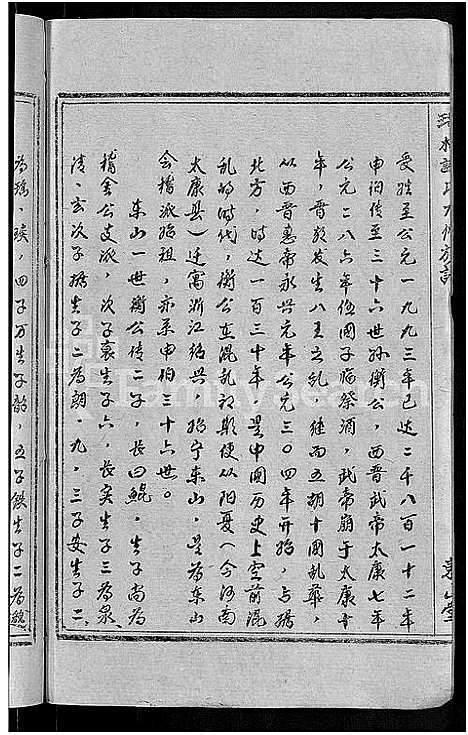 受姓至公元一九九三年已达二千八百一十二年
申伯传至三十六世孙衡公，西晋武帝太康七年
公元二八六年任国子临祭酒，武帝崩于太康十
年，晋朝发生八王之乱，继而五胡十国乱华，
以西晋惠帝永兴元年公元三〇四年开始，占据
北方，时达一百三十年，是中国历史上空前混
乱的时代，衡公在混乱初期便从阳夏（今河南
太康县）迁寓浙江绍兴，始宁东山，是为东山
会稽派始祖，亦系申伯三十六世。
东山一世衡公传二子，长曰鲲，生子尚为
稽金公支派，次子裒生子六，长奕生子三为泉
清、玄次子据生子二为朗、九，三子安生子二
为瑶、琰，四子万生子韶，五子铁生子二为邈
FamilySearch